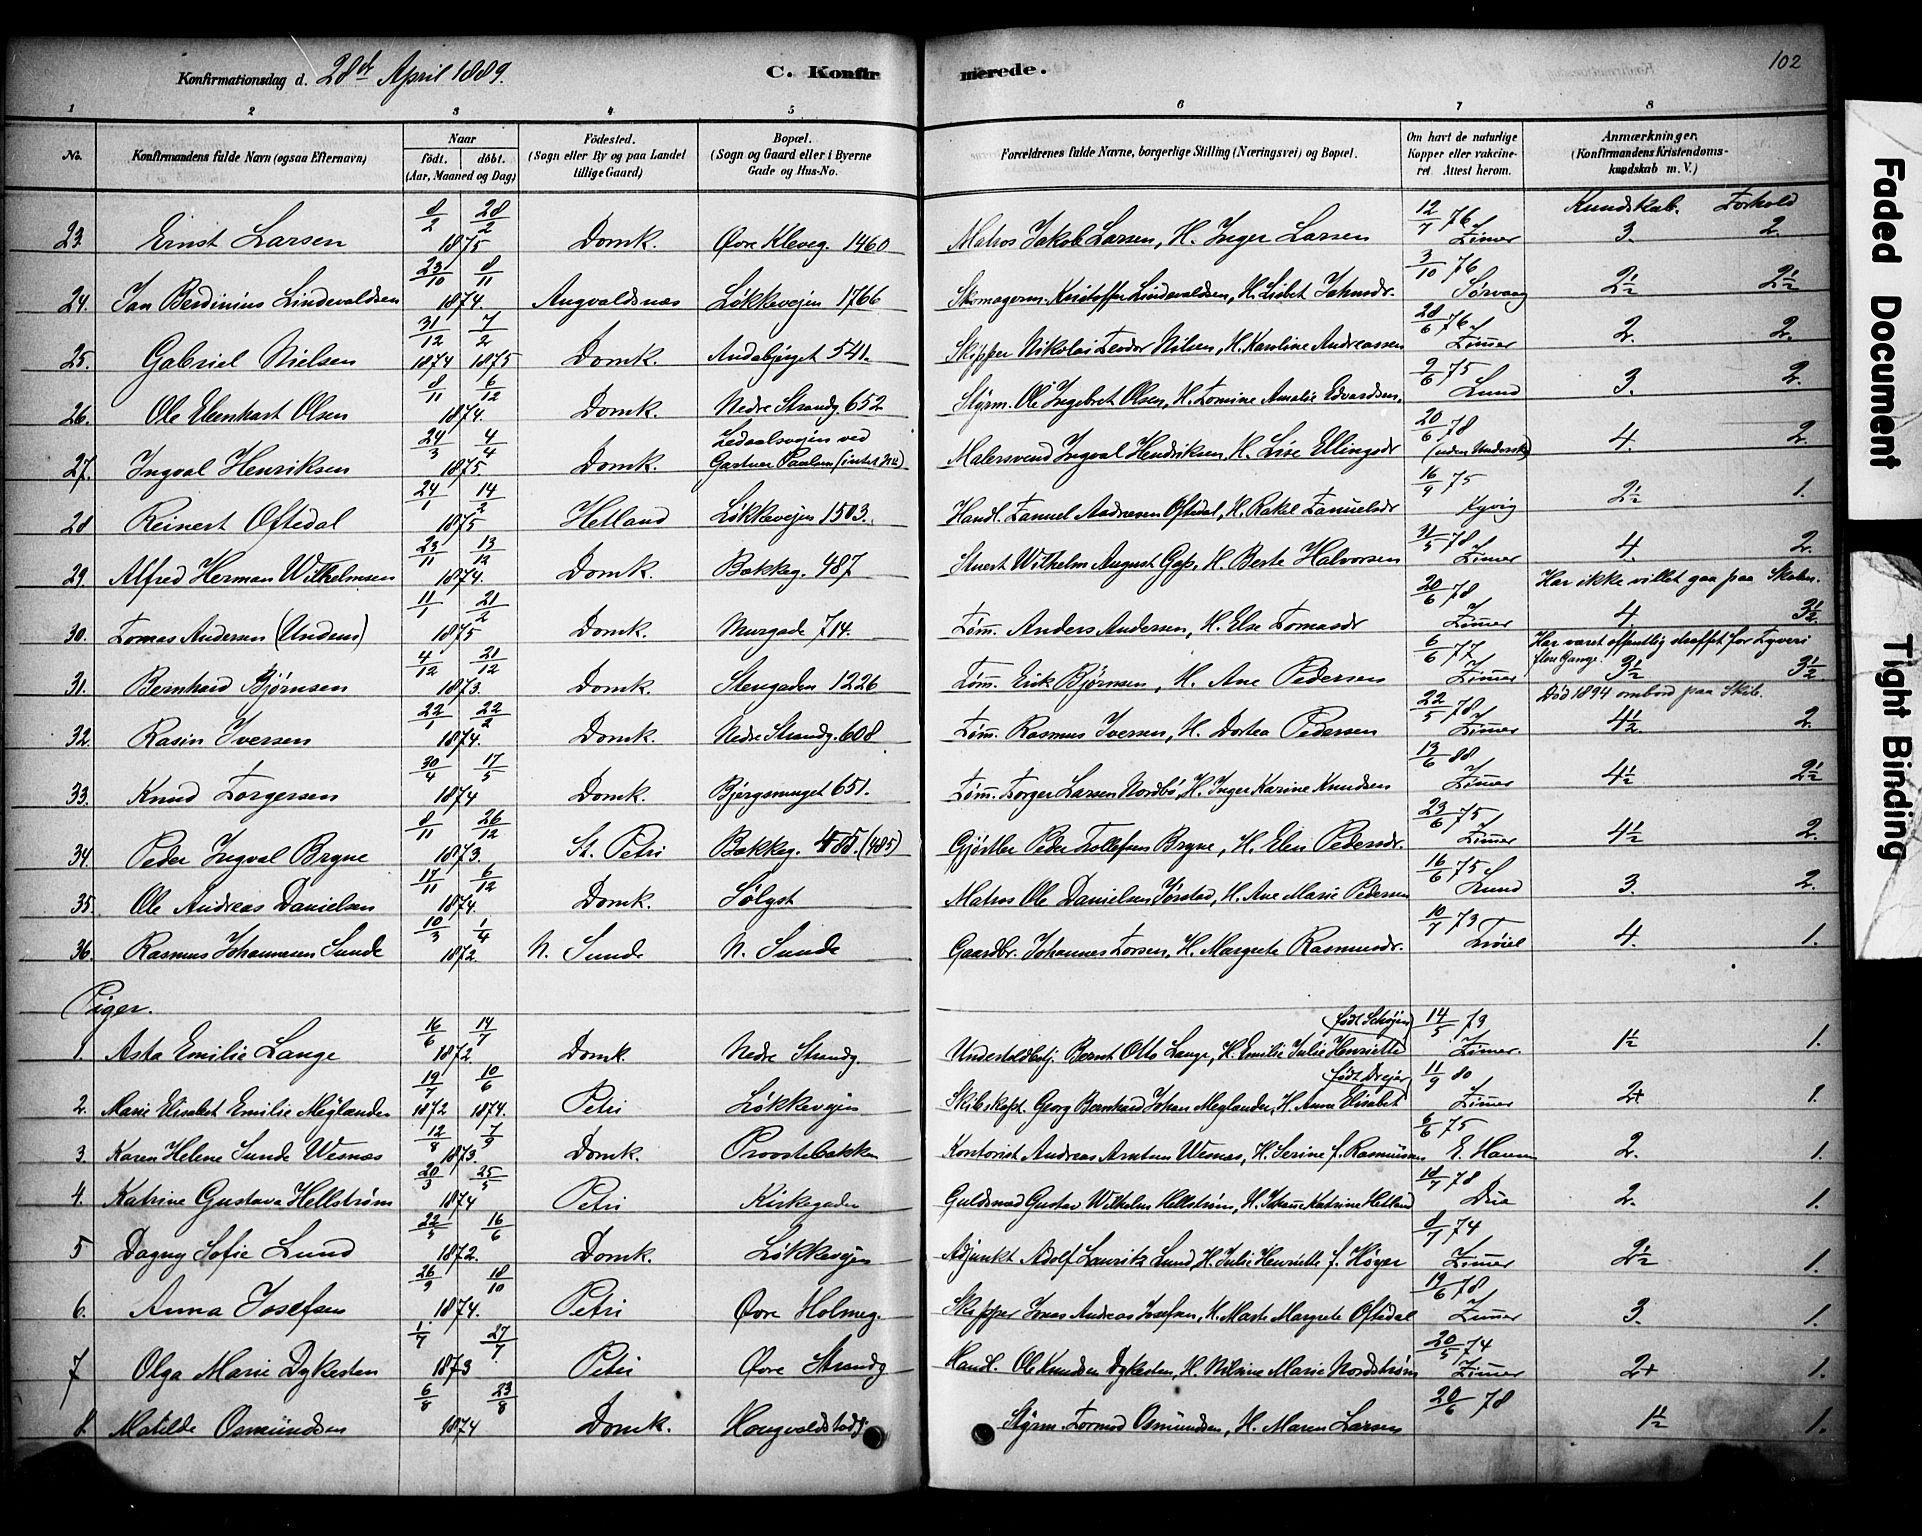 Konfirmationsdag d. 28de April 1889. C. Konfirmerede. 102
1 2 3 4 5 6 7 8
No. Konfirmandens fulde Navn (ogsaa Efternavn) Naar födt. döbt. (Aar, Maaned og Dag) Födested. (Sogn eller By og paa Landet tillige Gaard) Bopæl. (Sogn og Gaard eller i Byerne Gade og Hus-No. Forældrenes fulde Navne, borgerlige Stilling (Næringsvei) og Bopæl. Om havt de naturlige Kopper eller vakcineret Attest herom. Anmærkninger. (Konfirmandens Kristendomskundskab m. V.)
Kundskab. Forhold
23. Ernst Larsen 8/2 28/2 1875 Domk. Øvre Kleveg. 1460 Matros Jakob Larsen, H. Inger Larsen 12/7 76 Zimer 3. 2.
24. Jan Berdinius Lindevaldsen 23/10 8/11 1874 Augvaldsnæs Løkkevejen 1766 Skomagerm. Kristoffer Lindevaldsen, H. Lisbet Johnsdr. 3/10 76 Sørvaag 2½ 2½
25. Gabriel Nielsen 31/12 1874 7/2 1875 Domk. Andabjerget 541. Skipper Nikolai Teodor Nilsen, H. Karoline Andreassen 28/6 76 Zimer 2. 2.
26. Ole Edernhart Olsen 8/11 6/12 1874. Domk. Nedre Strandg 652 Styrm. Ole Ingebret Olsen, H. Tomine Amalie Edvardsen. 9/6 75 Lund 3. 2.
27. Ingval Henriksen 24/3 4/4 1875 Domk. Ledaalsvejen ved Gartner Paulsen (intet No) Malersvend Ingval Hendriksen, H. Lise Ellingsdr 20/6 78 (uden Underskr) 4. 2.
28 Reinert Oftedal 24/1 14/2 1875 Hetland Løkkevejen 1503. Handl. Samuel Andresen Oftedal, H. Rakel Samuelsdr 16/9 75 Kyvig 2½ 1.
29. Alfred Herman Wilhelmsen 23/11 13/12 1874. Domk. Bakkeg. 487 Stuert Wilhelm August Gap, H. Berte Halvorsen 31/5 78 Zimer 4. 2.
30. Tomas Andersen (Undens) 11/1 21/2 1875 Domk. Murgade 714. Tøm. Anders Andersen, H. Else Tomasdr 20/6 78 Zimer Har ikke villet gaa paa Skolen. 4 3½
31. Bernhard Bjørnsen 4/12 21/12 1873. Domk. Stengaden 1226 Tøm. Erik Bjørnsen, H. Ane Pedersen 6/6 77 Zimer Har været offentlig straffet for Tyveri flere Gange. 3½ 3½
32. Rasin Iversen 22/1 22/2 1874. Domk. Nedre Strandg. 608 Tøm. Rasmus Iversen, H. Dortea Pedersen 22/5 78 Zimer Død 1894 ombord paa Skib. 4½ 2.
33. Knud Torgersen 30/4 17/5 1874 Domk. Bjergsmuget 651. Tøm. Torger Larsen Nordbø, H. Inger Karine Knudsen 13/6 88 Zimer 4½ 2½
34. Peder Ingval Bryne 8/11 26/12 1873. St. Petri Bakkeg. (485) Gjørtler Peder Tollefsen Bryne, H. Elen Pedersdr. 23/6 75 Zimer 4½ 2.
35. Ole Andreas Danielsen 17/11 6/12 1874. Domk. Sølyst Matros Ole Danielsen Jørstad, H. Ane Marie Pedersen 16/6 75 Lund 3. 2.
36. Rasmus Johannesen Sunde 10/3 1/4 1872. N. Sunde N. Sunde Gaardbr. Johannes Torsen, H. Margrete Rasmusdr. 10/7 73 Trøiel 4. 1.
Piger.
1. Asta Emilie Lange 16/6 14/7 1872 Domk. Nedre Strandg. Undertoldbetj. Bernt Otto Lange, H. Emilie Julie Henriette født Schøjen 14/5 79 Zimer. 1½ 1.
2. Marie Elisabet Emilie Meylander 19/7 1872 10/6 1874. Petri Løkkevejen Skibskapt. Georg Bernhard Johan Meylander, H. Anna Elisabet født Drejer 11/9 80 Zimer 2+ 1.
3. Karen Helene Sunde Wesnæs 12/8 7/9 1873. Domk. Provstebakken Kontorist Andreas Arntsen Wesnæs, H. Serine f. Rasmussen 6/6 75 E. Haven 2. 1.
4. Katrine Gustava Hellstrøm 20/3 25/5 1874 Petri Kirkegaden Guldsmed Gustav Wilhelm Hellstrøm, H. Johanne Katrine Hetland 18/7 78 Due 2. 1.
5 Dagny Sofie Lund 22/5 16/6 1872. Domk. Løkkevejen Adjunkt Adolf Lauritz Lund H. Julie Henriette f. Høyer 8/7 74 Zimer 2½ 1.
6. Anna Josefsen 26/9 18/10 1874. Petri Øvre Holmeg. Skipper Jonas Andreas Josefsen, H. Marte Margrete Oftedal 19/6 78 Zimer 3. 1.
7 Olga Marie Dykesten 1/7 27/7 1873 Petri Øvre Strandg Handl. Ole Knudsen Dykesten, H. Nilsine Marie Nordstrøm 20/5 74 Zimer 2+ 1.
8. Matilde Osmundsen 6/8 23/8 1874 Domk. Hougvaldstadg. Styrm. Tormod Osmundsen, H. Maren Larsen 20/6 78 1½ 1.
Faded Document
Tight Binding